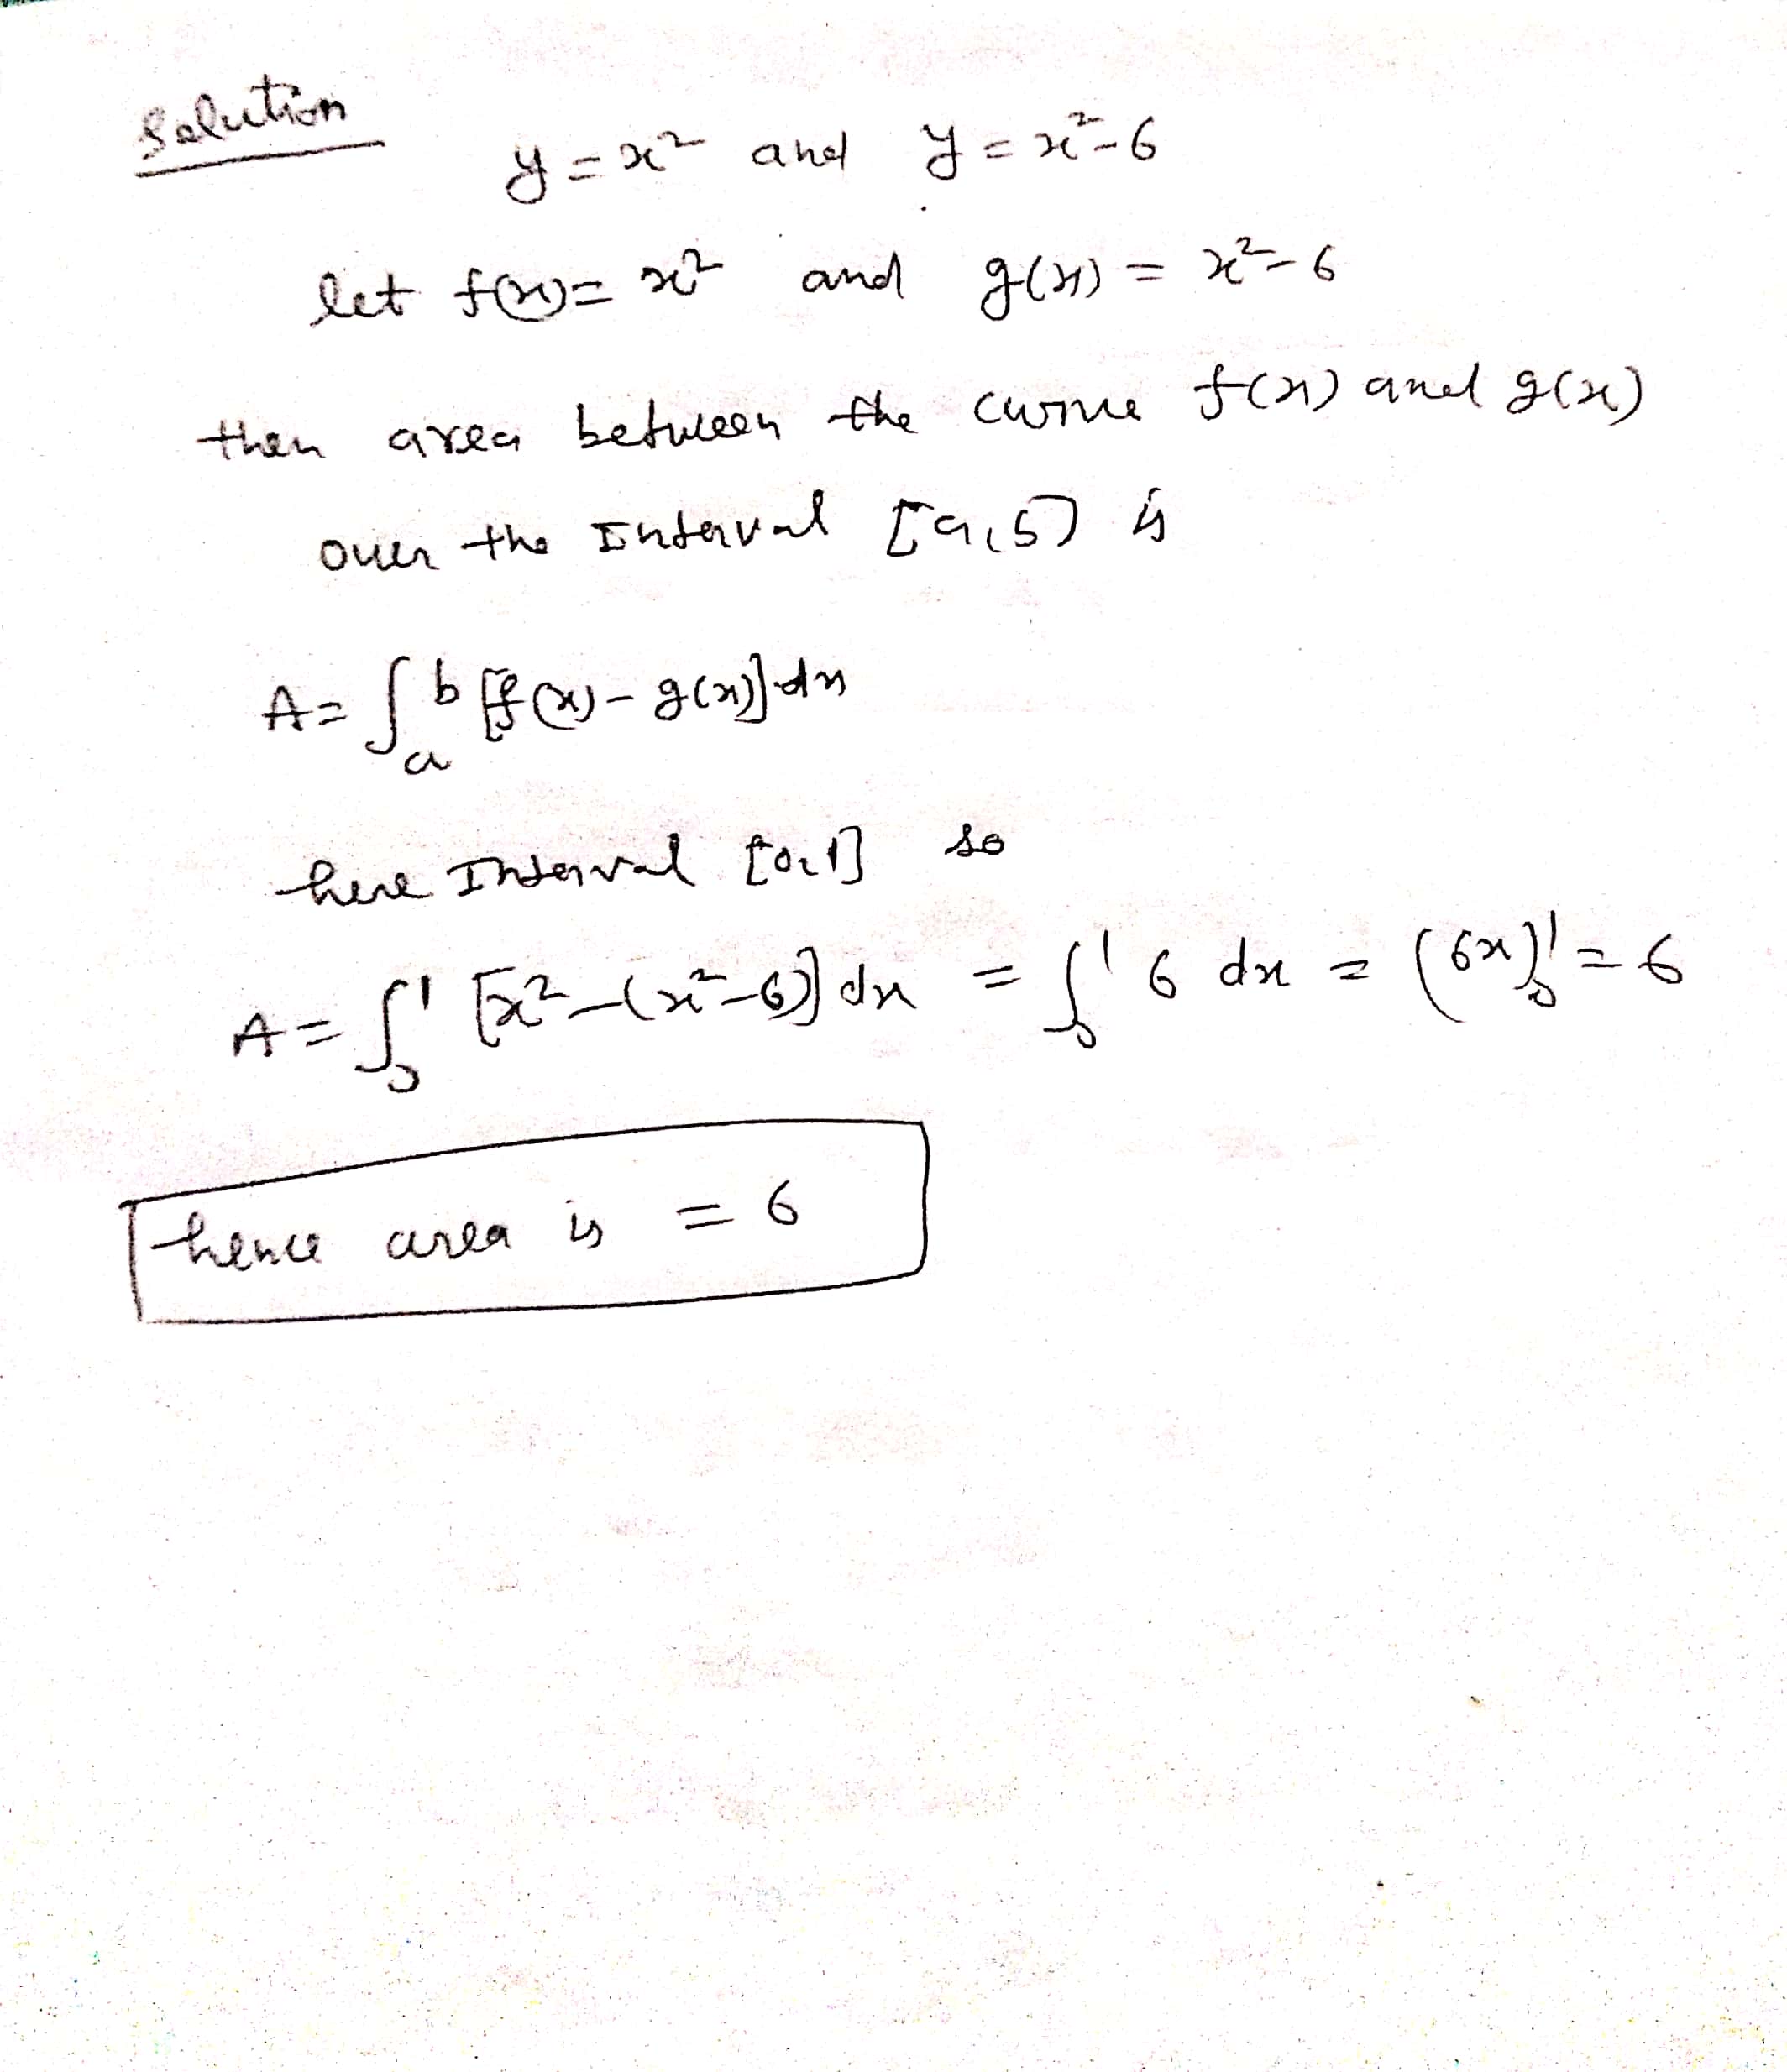 Solution
y = x² and y = x²-6
let f(x) = x² and g(x) = x²-6
then area between the curve f(x) and g(x)
over the Interval [a,b] is
A = ∫_a^b [f(x) - g(x)] dx
here Interval [0,1] so
A = ∫_0^1 [x² - (x²-6)] dx = ∫_0^1 6 dx = (6x)_0^1 = 6
hence area is = 6